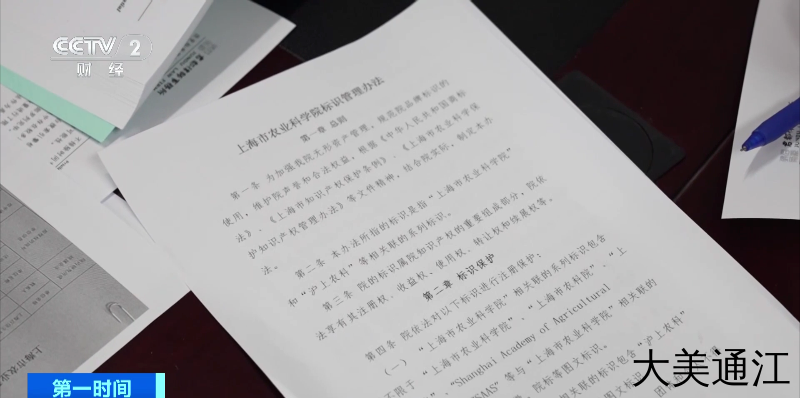 CCTV 2
财经
上海市农业科学院标识管理办法
第一章 总则
第一条 为加强我院无形资产管理，规范院品牌标识的
使用，维护院声誉和合法权益，根据《中华人民共和国商标
法》、《上海市知识产权保护条例》、《上海市农业科学院
护知识产权管理办法》等文件精神，结合院实际，制定本办
法。
第二条 本办法所指的标识是指“上海市农业科学院”
和“沪上农科”等相关联的系列标识。
第三条 院的标识属院知识产权的重要组成部分，院依
法享有其注册权、收益权、使用权、转让权和续展权等。
第二章 标识保护
第四条 院依法对以下标识进行注册保护：
（一）“上海市农业科学院”相关联的系列标识包含
不限于“上海市农业科学院”、“上海市农科院”、“上
”、“Shanghai Academy of Agricultural
SAAS”等与“上海市农业科学院”相关联的
、院标等图文标识。
相关联的系列标识包含“沪上农科”
图文标识
第一时间
大美通江